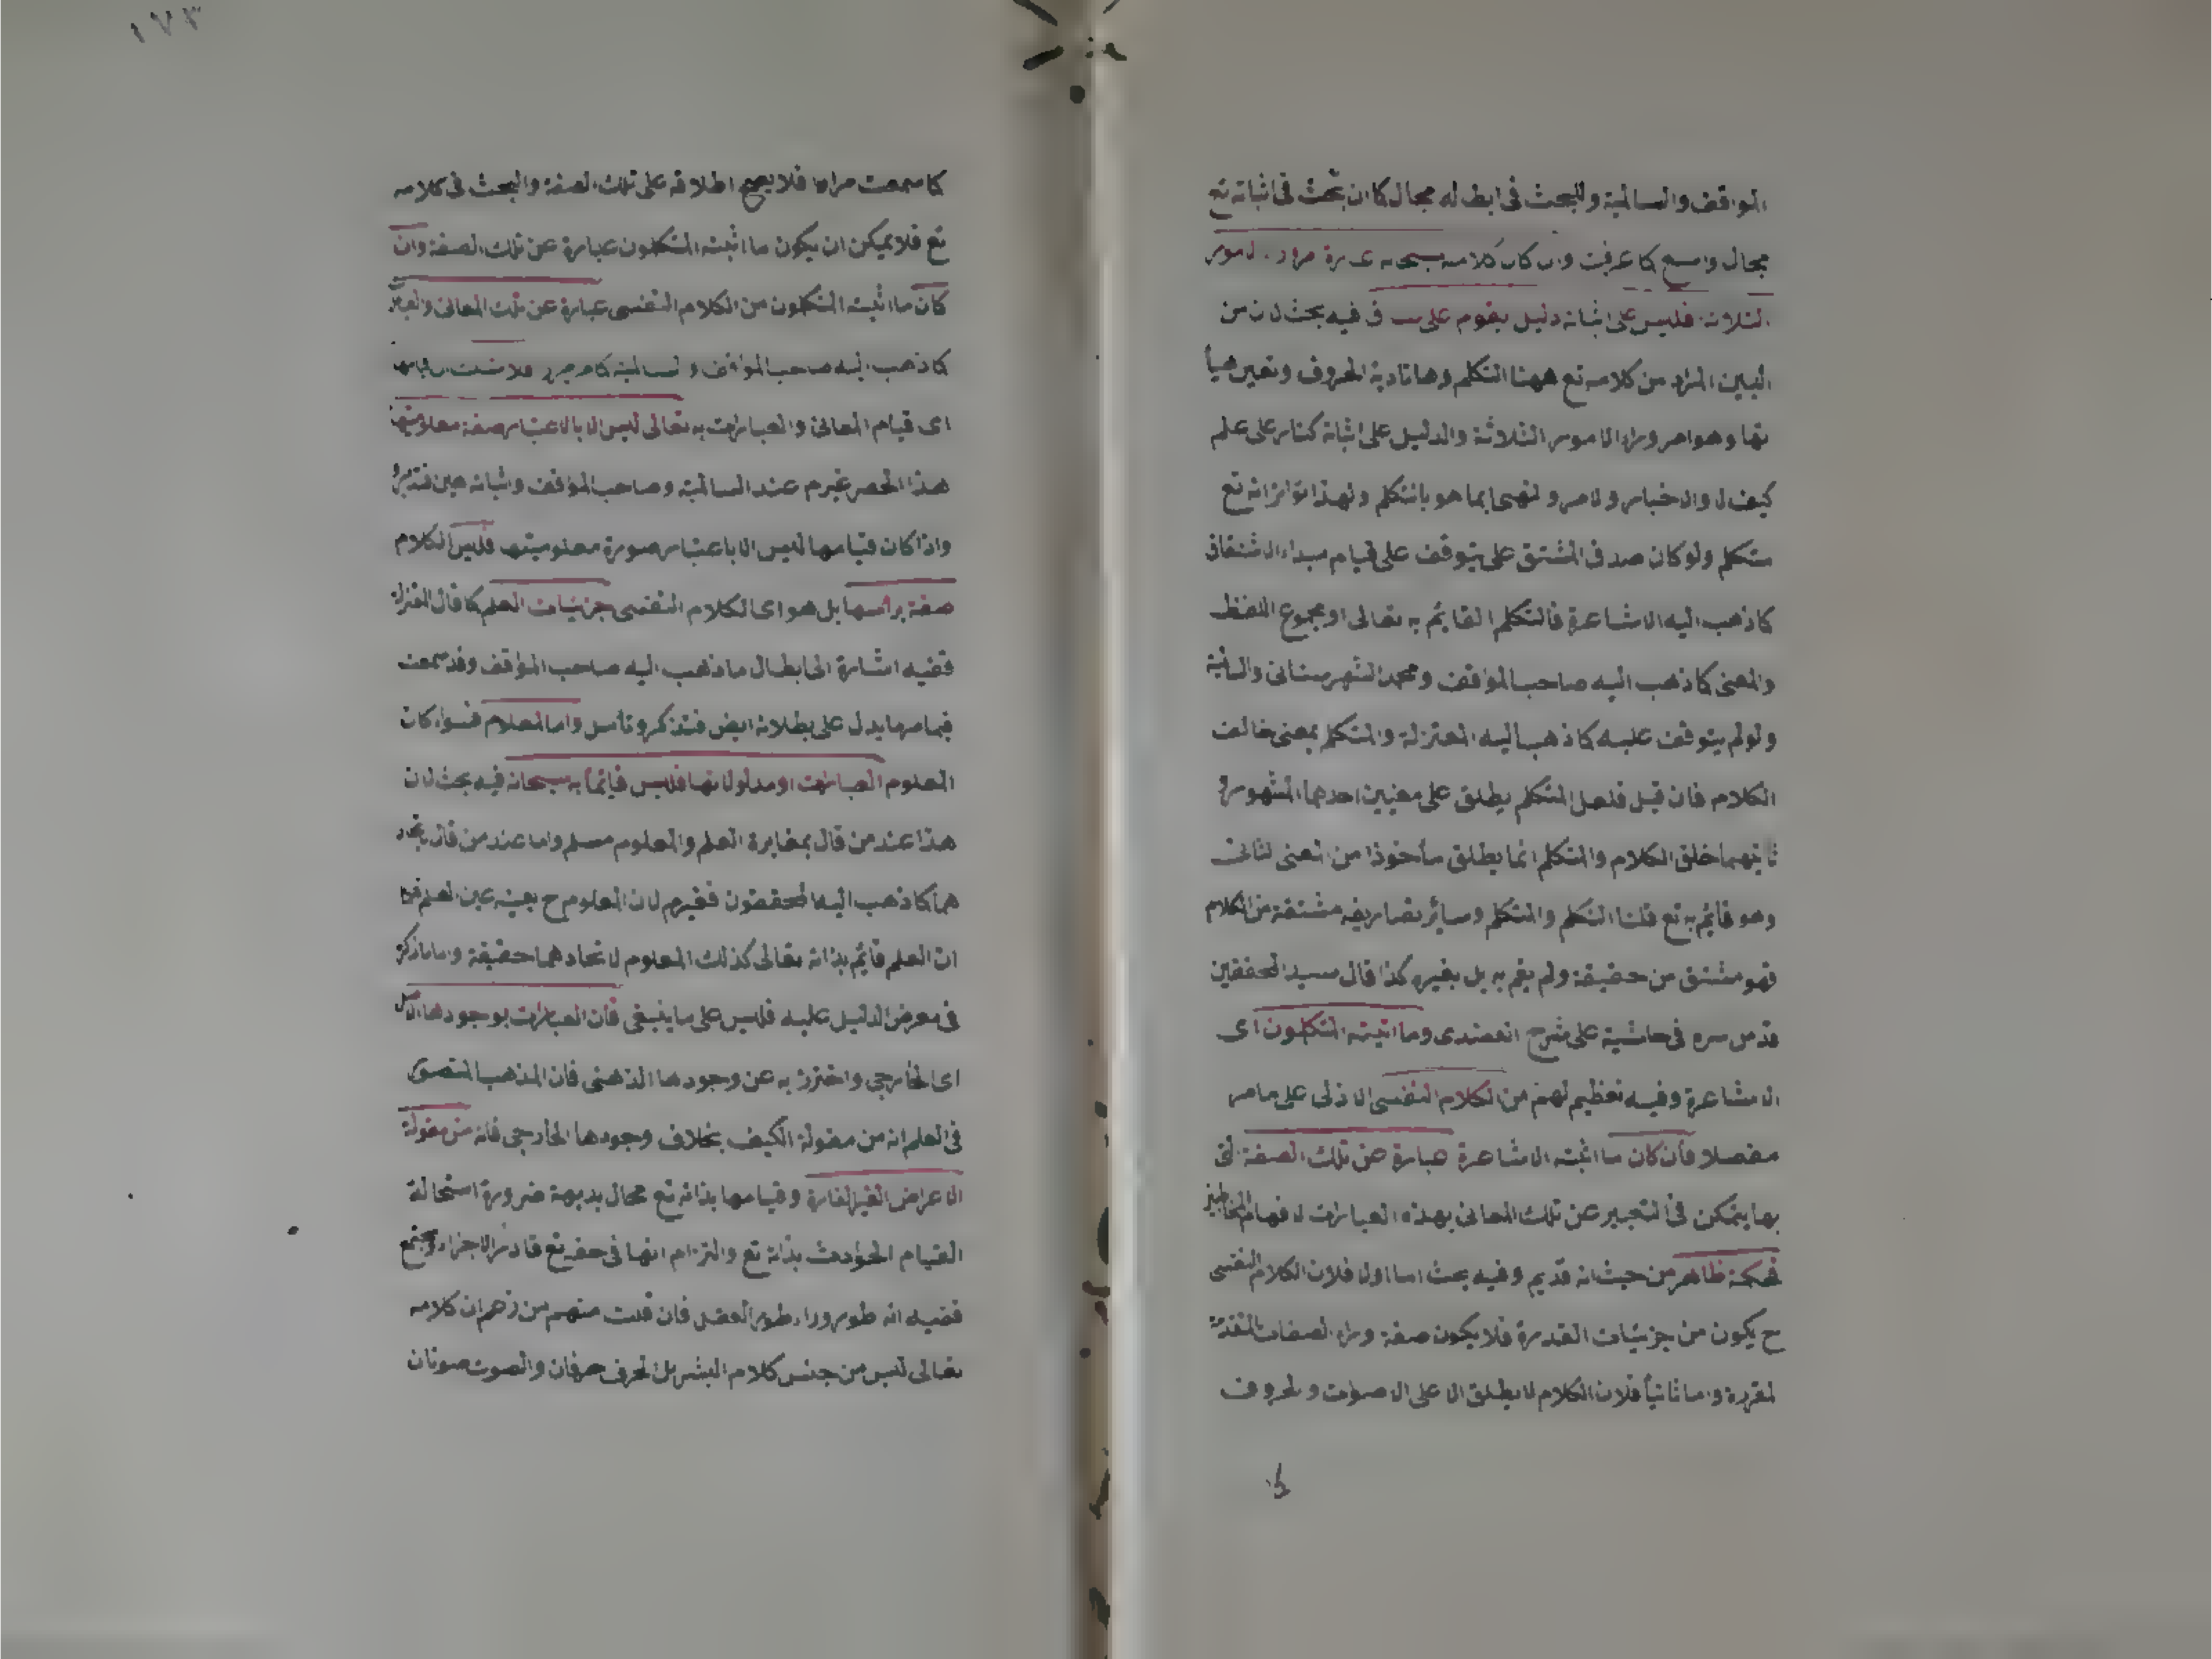 المواقف والسالمية وللبحث في ابطاله مجال كما ان بحث في اثباته تع
مجال واسع كما عرفت وان كان كلامه سبحانه عبارة امور
الثلاثة فليس على اثباته دليل يقوم على ساق فيه بحث لان من
البين المراد من كلامه تع ههنا التكلم وها تادية الحروف وتعين هيأ
تها وهو امر وراء الامور الثلاثة والدليل على اثباته كنار على علم
كيف لا والاخبار والامر والنهي انما هو بالتكلم ولهذا تواتر انه تع
متكلم ولو كان صدق المشتق على يتوقف على قيام مبداء الاشتقاق
كما ذهب اليه الاشاعرة فالتكلم القايم به تعالى او مجموع اللفظ
والمعنى كما ذهب اليه صاحب المواقف ومحمد الشهرستاني والسالمية
ولو لم يتوقف عليه كما ذهب اليه المعتزلة والمتكلم بمعنى خالق
الكلام فان قيل فلعل المتكلم يطلق على معنيين احدهما المشهور
ثانيهما خلق الكلام والمتكلم انما يطلق مأخوذا من المعنى الثاني
وهو قايم به تع قلنا التكلم والمتكلم وساير تصاريفه مشتقة من الكلام
فهو مشتق من حقيقة ولم يقم به بل بغيره كذا قال سيد المحققين
قدس سره في حاشية على شرح العضدى وما اثبته المتكلمون اى
الاشاعرة وفيه تعظيم لهم من الكلام النفسى الازلى على ما مر
مفصلا فان كان ما اثبته الاشاعرة عبارة عن تلك الصفة التى
بها يتمكن فى التعبير عن تلك المعانى بهذه العبارات لافهام المخاطبين
فحكمه ظاهر من حيث انه قديم وفيه بحث اما اولا فلان الكلام النفسى
ح يكون من جزئيات القدرة فلا يكون صفة وراء الصفات المتقدمة
المقررة واما ثانيا فلان الكلام لا يطلق الا على الاصوات والحروف
١٧٣
كما سمعت مرارا فلا يصح اطلاقه على تلك الصفة والبحث فى كلامه
تع فلا يمكن ان يكون ما اثبته المتكلمون عبارة عن تلك الصفة وان
كان ما اثبته المتكلمون من الكلام النفسى عبارة عن تلك المعانى والعبارات
كما ذهب اليه صاحب المواقف والسالمية كما مر فلا شك ان قيامها
اى قيام المعانى والعبارات به تعالى ليس الا بالاعتبار صفة معلوميتها
هذا الحصر غير م عند السالمية وصاحب المواقف واثباته هين فتدبر
واذا كان قيامها ليس الا باعتبار صورة معلوميتها فليس الكلام
صفة برأسها بل هو اى الكلام النفسى جزئيات العلم كما قال المعتزلة
ففيه اشارة الى ابطال ما ذهب اليه صاحب المواقف وقد سمعت
فيما مر ما يدل على بطلانه ايض فتذكر وتأمل واما المعلوم فسواء كان
المعلوم العبارات او مدلولاتها فليس قايما به سبحانه فيه بحث لان
هذا عند من قال بمغايرة العلم والمعلوم مسلم واما عند من قال باتحاد
هما كما ذهب اليه المحققون فغير م لان المعلوم ح بعينه عين العلم فكما
ان العلم قايم بذاته تعالى كذلك المعلوم لاتحادهما حقيقة واما ما ذكر
فى معرض الدليل عليه فليس على ما ينبغى فان العبارات بوجودها
اى الخارجي واحترز به عن وجودها الذهنى فان المذهب المنصور
فى العلم انه من مقولة الكيف بخلاف وجودها الخارجى فانه من مقولة
الاعراض الغير القارة وقيامها بذاته تع محال بديهة ضرورة استحالة
القيام الحوادث بذاته تع والتزام انها فى حقه تع قار الاجزاء
ففيه انه طور وراء طور العقل فان قلت منهم من زعم ان كلامه
تعالى ليس من جنس كلام البشر بل الحرف حرفان والصوت صوتان